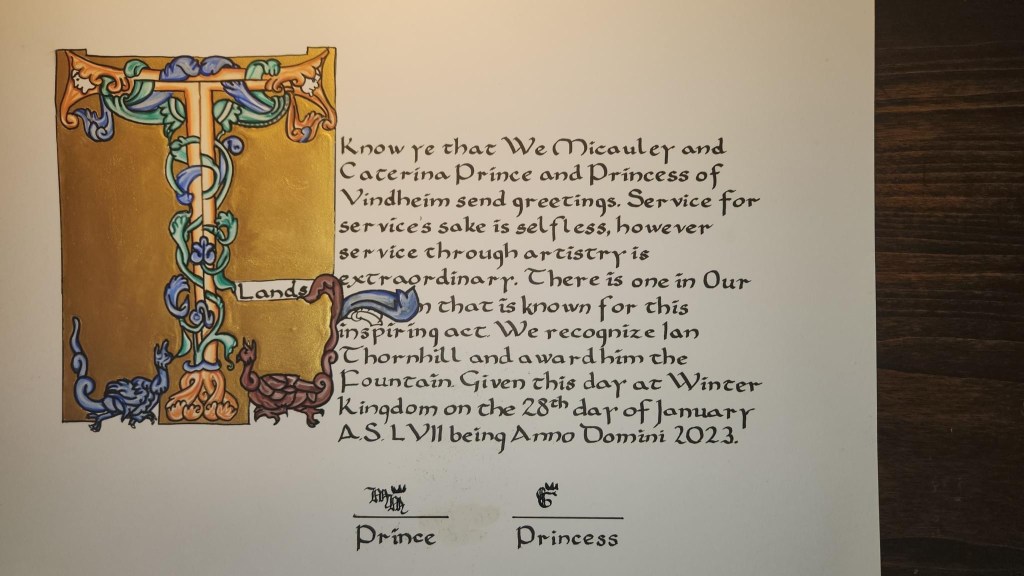 T
Know ye that We Micauley and
Caterina Prince and Princess of
Vindheim send greetings. Service for
service's sake is selfless, however
service through artistry is
extraordinary. There is one in Our
Lands
n that is known for this
inspiring act. We recognize Ian
Thornhill and award him the
Fountain. Given this day at Winter
Kingdom on the 28th day of January
A.S. LVII being Anno Domini 2023.
Prince
Princess